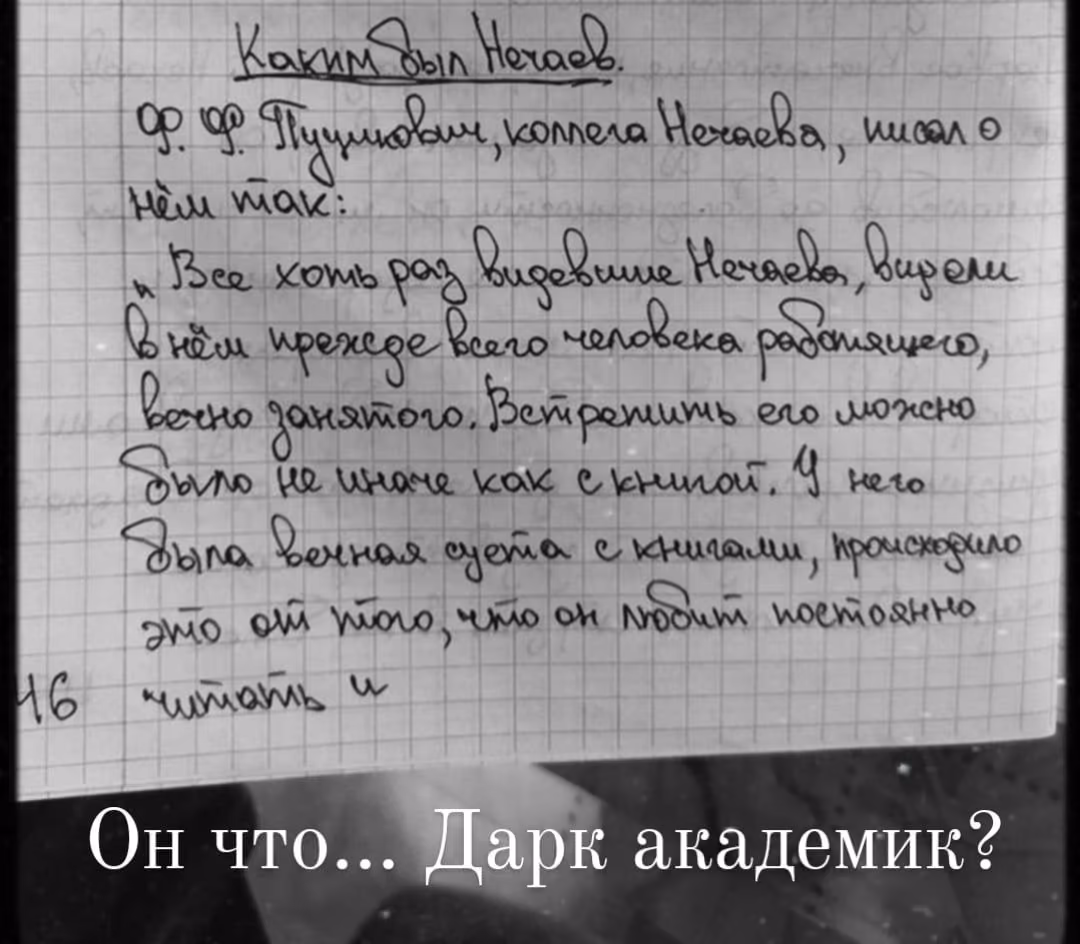 Каким был Нечаев.
Ф. Ф. Пуцикович, коллега Нечаева, писал о
нём так:
„Все хоть раз видевшие Нечаева, видели
в нём прежде всего человека работящего,
вечно занятого. Встретить его можно
было не иначе как с книгой. У него
была вечная суета с книгами, происходило
это от того, что он любит постоянно
16 читать и
Он что... Дарк академик?